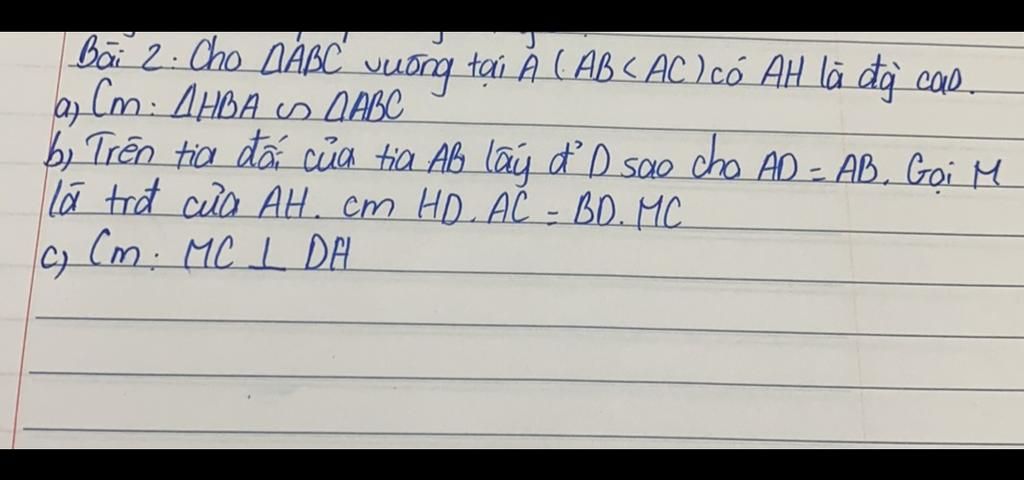 Bài 2. Cho ΔABC vuông tại A (AB < AC) có AH là đg̀ cao.
a, Cm: ΔHBA ∽ ΔABC
b, Trên tia đối của tia AB lấy đ' D sao cho AD = AB. Gọi M
là trđ của AH. cm HD. AC = BD. MC
c, Cm: MC ⊥ DH